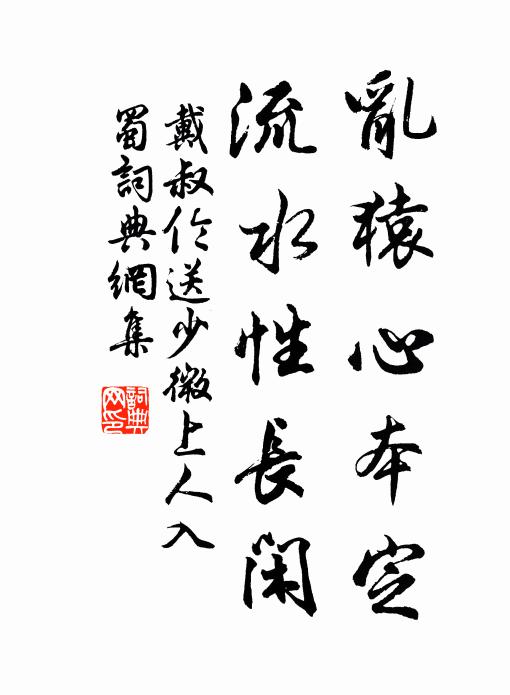 亂猿心本定
流水性長閑
戴叔伦送少微上人入
蜀詞典網集
詞典
网印